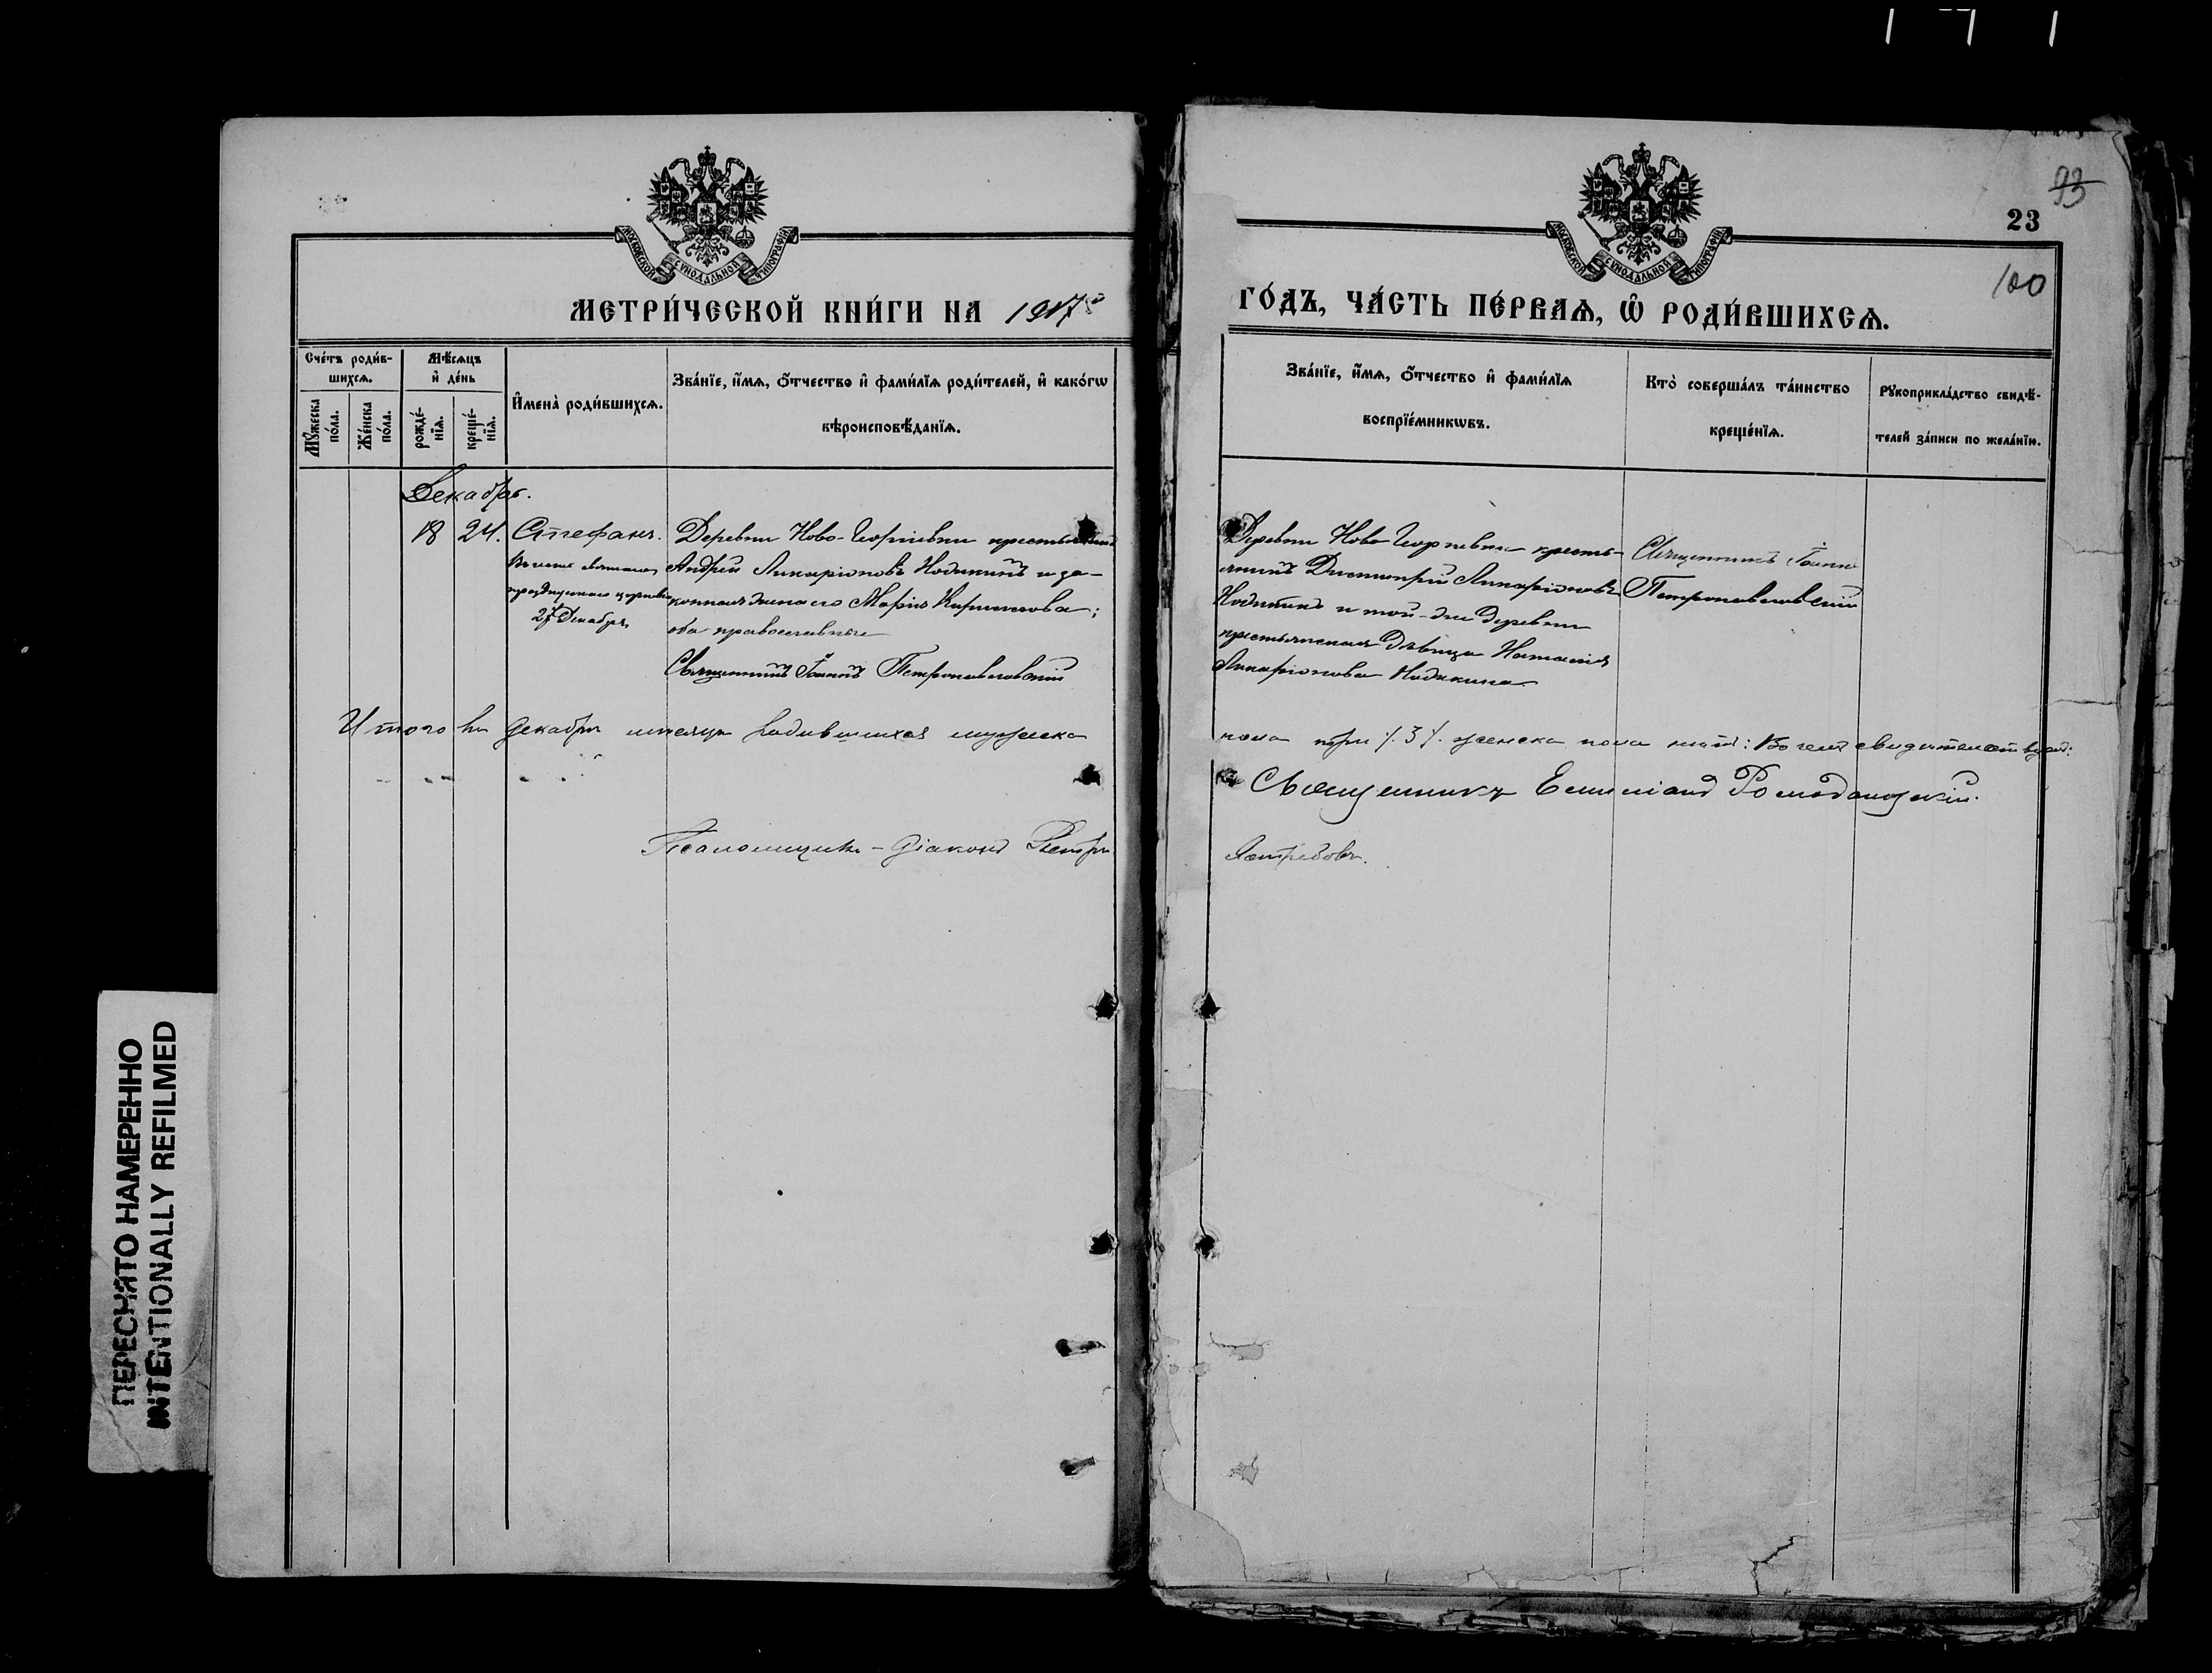 93
23
100
МОСКОВСКОЙ СѴНОДАЛЬНОЙ ТИПОГРАФІИ
МОСКОВСКОЙ СѴНОДАЛЬНОЙ ТИПОГРАФІИ
МЕТРИ́ЧЕСКОЙ КНИ́ГИ НА 1917
ГО́ДЪ, ЧА́СТЬ ПЕ́РВАѦ, Ѽ РОДИ́ВШИХСѦ.
Сче́тъ роди́в-
шихсѧ.
Мꙋ́жеска по́ла.
Же́нска по́ла.
Мѣ́сѧцъ
и҆ де́нь
рожде́-
нїѧ.
креще́-
нїѧ.
И҆мена̀ роди́вшихсѧ.
Зва́нїе, и҆́мѧ, ѻ҆́тчество и҆ фами́лїѧ роди́телей, и҆ како́гѡ
вѣроисповѣ́данїѧ.
Зва́нїе, и҆́мѧ, ѻ҆́тчество и҆ фами́лїѧ
воспрїе́мникѡвъ.
Кто̀ соверша́лъ та́инство
креще́нїѧ.
Рꙋкоприкла́дство свидѣ́-
телей за́писи по жела́нїю.
Декабрь.
18 24. Стефанъ.
27 Декабря
Деревни Ново-Георгіевки крестьянинъ
Андрей Иларіоновъ и за-
конная жена его Марія
оба православные
Священникъ Іоаннъ Петропавловскій
Деревни Ново-Георгіевки кресть-
янинъ Димитрій Иларіоновъ
и той-же деревни
крестьянская дѣвица Наталія
Иларіонова
Священникъ Іоаннъ
Петропавловскій
Итого въ декабрѣ месяцѣ родившихся мужеска
пола три /.3/. женска пола нѣтъ: Въ чемъ свидѣтельствуемъ:
Священникъ Емиліанъ Ромодановскій.
Псаломщикъ - діаконъ Петръ
Ястребовъ.
ПЕРЕСНЯТО НАМЕРЕННО
INTENTIONALLY REFILMED